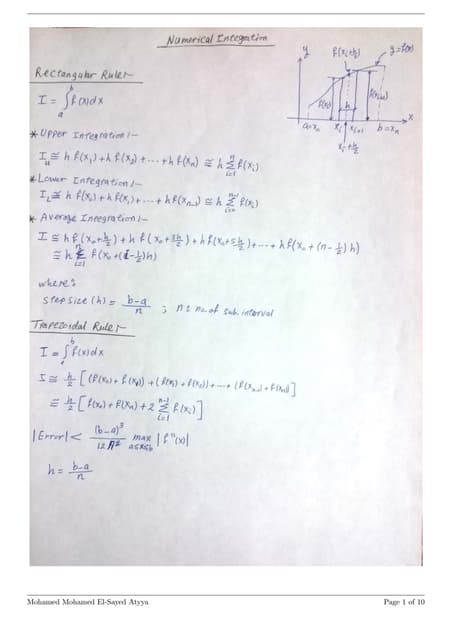 Numerical Integration
y
f(xᵢ+h/2)
y=f(x)
f(xᵢ)
f(xᵢ₊₁)
h
x
a=x₀
xᵢ
xᵢ₊₁
b=xₙ
xᵢ+h/2
Rectangular Rule:-
I = ∫ₐᵇ f(x)dx
* Upper Integration:-
I_u ≅ h f(x₁) + h f(x₂) + .... + h f(xₙ) ≅ h Σᵢ₌₁ⁿ f(xᵢ)
* Lower Integration:-
I_L ≅ h f(x₀) + h f(x₁) + .... + h f(xₙ₋₁) ≅ h Σᵢ₌₀ⁿ⁻¹ f(xᵢ)
* Average Integration:-
I ≅ h f(x₀+h/2) + h f(x₀+3h/2) + h f(x₀+5h/2) + .... + h f(x₀+(n-1/2)h)
≅ h Σᵢ₌₁ⁿ f(x₀+(i-1/2)h)
where:
step size (h) = (b-a)/n ; n : no. of sub. interval
Trapezoidal Rule:-
I = ∫ₐᵇ f(x)dx
I ≅ h/2 [(f(x₀)+f(x₁)) + (f(x₁)+f(x₂)) + .... + (f(xₙ₋₁)+f(xₙ))]
≅ h/2 [f(x₀)+f(xₙ)+2 Σᵢ₌₁ⁿ⁻¹ f(xᵢ)]
|Error| < (b-a)³/12n² max a≤x≤b |f''(x)|
h = (b-a)/n
Mohamed Mohamed El-Sayed Atyya
Page 1 of 10